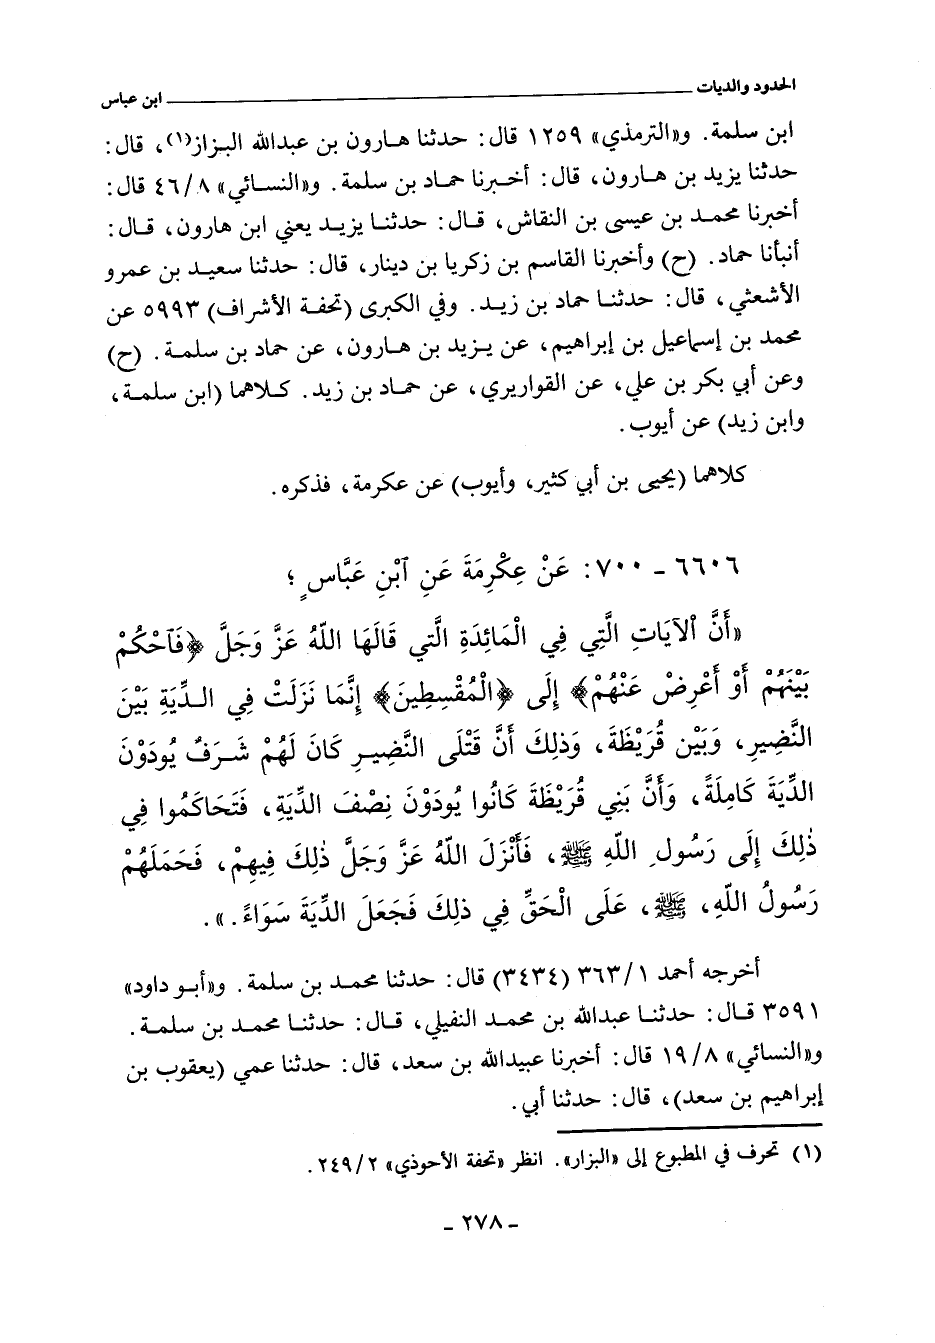 الحدود والديات ــــــــــــــــــــــــــــــــــــــــ ابن عباس
ابن سلمة. و«الترمذي» ١٢٥٩ قال: حدثنا هارون بن عبدالله البزاز(١)، قال:
حدثنا يزيد بن هارون، قال: أخبرنا حماد بن سلمة. و«النسائي» ٤٦/٨ قال:
أخبرنا محمد بن عيسى بن النقاش، قال: حدثنا يزيد يعني ابن هارون، قال:
أنبأنا حماد. (ح) وأخبرنا القاسم بن زكريا بن دينار، قال: حدثنا سعيد بن عمرو
الأشعثي، قال: حدثنا حماد بن زيد. وفي الكبرى (تحفة الأشراف) ٥٩٩٣ عن
محمد بن إسماعيل بن إبراهيم، عن يزيد بن هارون، عن حماد بن سلمة. (ح)
وعن أبي بكر بن علي، عن القواريري، عن حماد بن زيد. كلاهما (ابن سلمة،
وابن زيد) عن أيوب.
كلاهما (يحيى بن أبي كثير، وأيوب) عن عكرمة، فذكره.
٦٦٠٦ ـ ٧٠٠: عَنْ عِكْرِمَةَ عَنِ ٱبْنِ عَبَّاسٍ؛
«أَنَّ ٱلآيَاتِ الَّتِي فِي الْمَائِدَةِ الَّتي قَالَهَا اللّهُ عَزَّ وَجَلَّ ﴿فَٱحْكُمْ
بَيْنَهُمْ أَوْ أَعْرِضْ عَنْهُمْ﴾ إِلَى ﴿الْمُقْسِطِينَ﴾ إِنَّمَا نَزَلَتْ فِي الدِّيَةِ بَيْنَ
النَّضِيرِ، وَبَيْن قُرَيْظَةَ، وَذلِكَ أَنَّ قَتْلَى النَّضِيرِ كَانَ لَهُمْ شَرَفٌ يُودَوْنَ
الدِّيَةَ كَامِلَةً، وَأَنَّ بَنِي قُرَيْظَةَ كَانُوا يُودَوْنَ نِصْفَ الدِّيَةِ، فَتَحَاكَمُوا فِي
ذٰلِكَ إِلَى رَسُولِ اللّهِ ﷺ، فَأَنْزَلَ اللّهُ عَزَّ وَجَلَّ ذٰلِكَ فِيهِمْ، فَحَمَلَهُمْ
رَسُولُ اللّهِ، ﷺ، عَلَى الْحَقِّ فِي ذلِكَ فَجَعَلَ الدِّيَةَ سَوَاءً.».
أخرجه أحمد ٣٦٣/١ (٣٤٣٤) قال: حدثنا محمد بن سلمة. و«أبو داود»
٣٥٩١ قال: حدثنا عبدالله بن محمد النفيلي، قال: حدثنا محمد بن سلمة.
و«النسائي» ١٩/٨ قال: أخبرنا عبيدالله بن سعد، قال: حدثنا عمي (يعقوب بن
إبراهيم بن سعد)، قال: حدثنا أبي.
(١) تحرف في المطبوع إلى «البزار». انظر «تحفة الأحوذي» ٢٤٩/٢.
ـ ٢٧٨ ـ